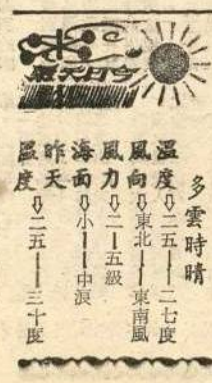 今日天氣
多雲時晴
溫度⇩二五——二七度
風向⇩東北——東南風
風力⇩二—五級
海面⇩小——中浪
昨天溫度⇩二五——三十度